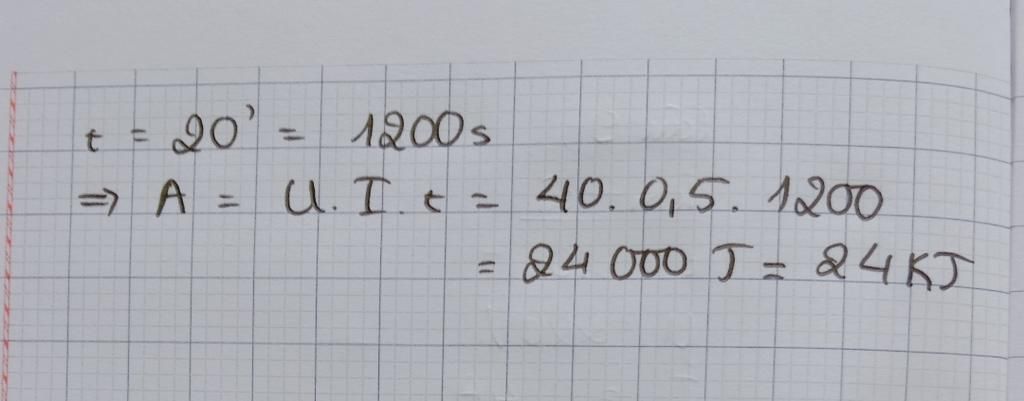 t = 20' = 1200s
=> A = U. I. t = 40. 0,5. 1200
= 24 000 J = 24KJ